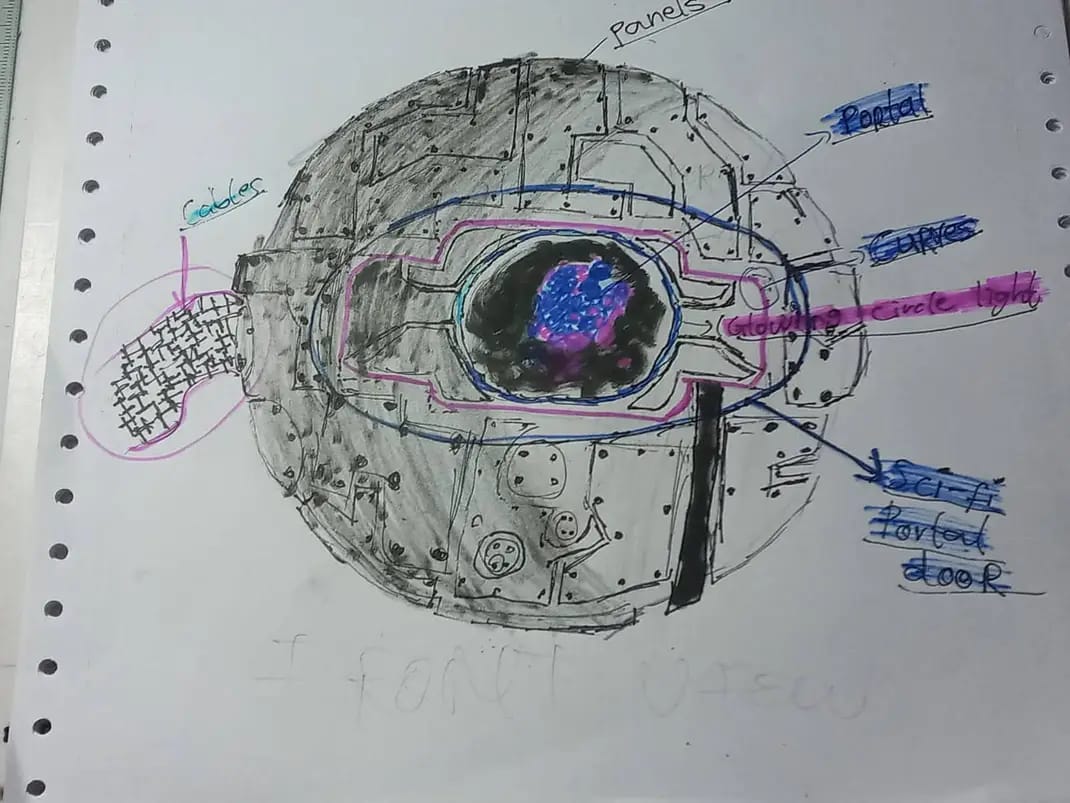 Panels
Portal
Cables
Curves
Glowing circle light
Sci-fi
Portal
dooR
FRONT VIEW